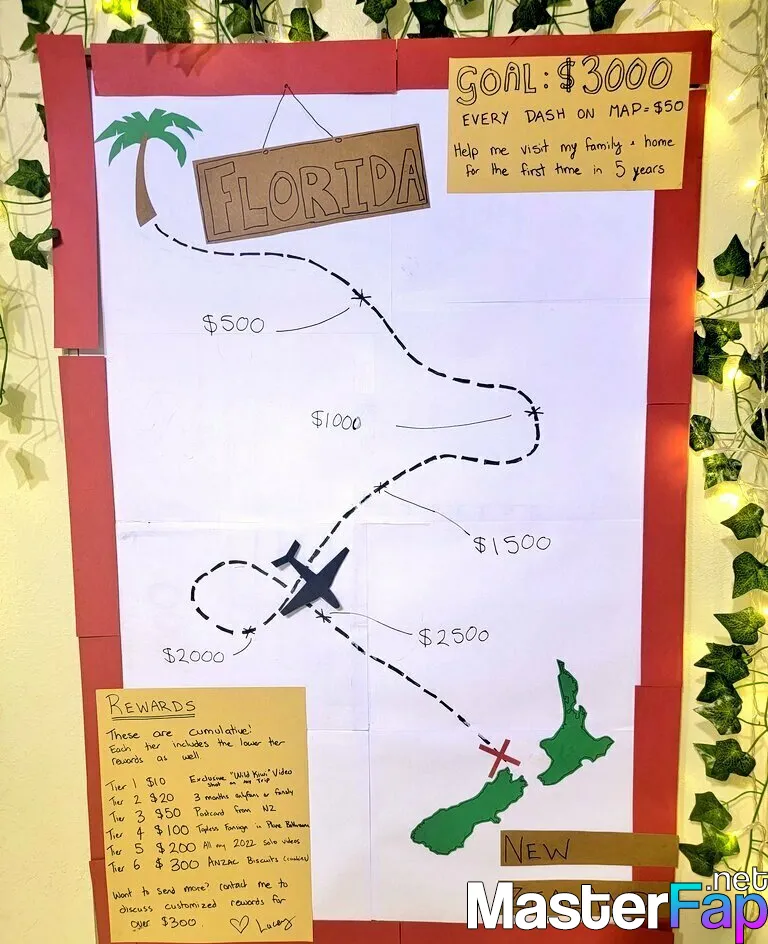 GOAL: $3000
EVERY DASH ON MAP = $50
Help me visit my family + home
for the first time in 5 years
FLORIDA
$500
$1000
$1500
$2000
$2500
REWARDS
These are cumulative!
Each tier includes the lower tier
rewards as well.
Tier 1 $10 Exclusive "Wild Kiwi" Video
shot on my trip
Tier 2 $20 3 months onlyfans or fansly
Tier 3 $50 Postcard from NZ
Tier 4 $100 Topless Fansign in Plane Bathroom
Tier 5 $200 All my 2022 solo videos
Tier 6 $300 ANZAC Biscuits (cookies)
Want to send more? contact me to
discuss customized rewards for
over $300. Lucy
NEW
MasterFap.net